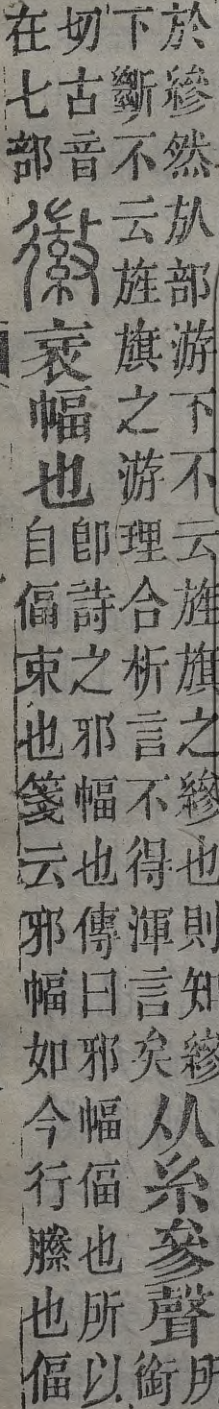 於縿然㫃部游下不云旌旗之縿也則知縿
下斷不云旌旗之游理合析言不得渾言矣
从糸參聲
所
銜
切古音
在七部
徽
衺幅也
即詩之邪幅也傳曰邪幅偪也所以
自偪束也箋云邪幅如今行縢也偪